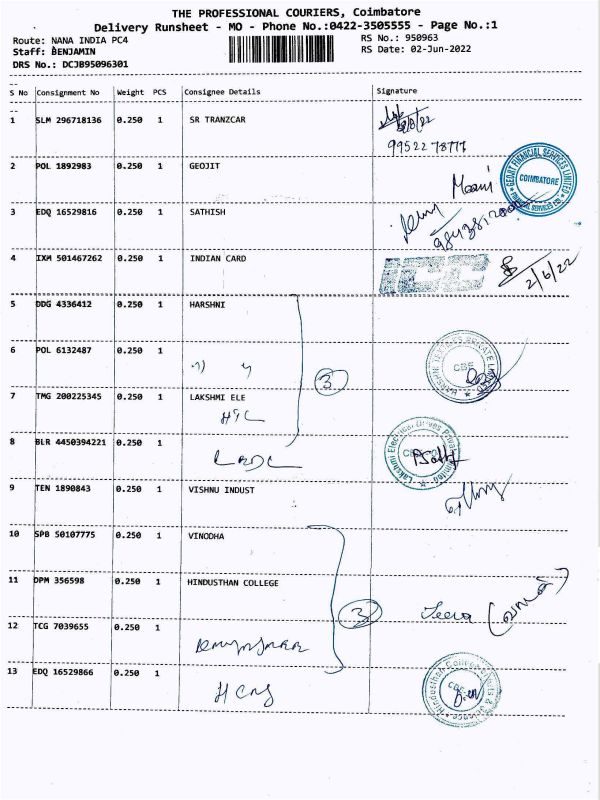 THE PROFESSIONAL COURIERS, Coimbatore
Delivery Runsheet - MO - Phone No.:0422-3505555 - Page No.:1
Route: NANA INDIA PC4 RS No.: 950963
Staff: BENJAMIN RS Date: 02-Jun-2022
DRS No.: DCJB95096301
S No Consignment No Weight PCS Consignee Details Signature
1 SLM 296718136 0.250 1 SR TRANZCAR
9952278777
2 POL 1892983 0.250 1 GEOJIT
GEOJIT FINANCIAL SERVICES LIMITED
COIMBATORE
3 EDQ 16529816 0.250 1 SATHISH
4 IXM 501467262 0.250 1 INDIAN CARD
ICC 2/6/22
5 DDG 4336412 0.250 1 HARSHNI
6 POL 6132487 0.250 1
3
CBS
7 TMG 200225345 0.250 1 LAKSHMI ELE
Lakshmi Electrical Drives Private Limited
8 BLR 4450394221 0.250 1
9 TEN 1890843 0.250 1 VISHNU INDUST
10 SPB 50107775 0.250 1 VINODHA
11 DPM 356598 0.250 1 HINDUSTHAN COLLEGE
3
12 TCG 7039655 0.250 1
13 EDQ 16529866 0.250 1
HCAS
Hindusthan College of Arts & Science